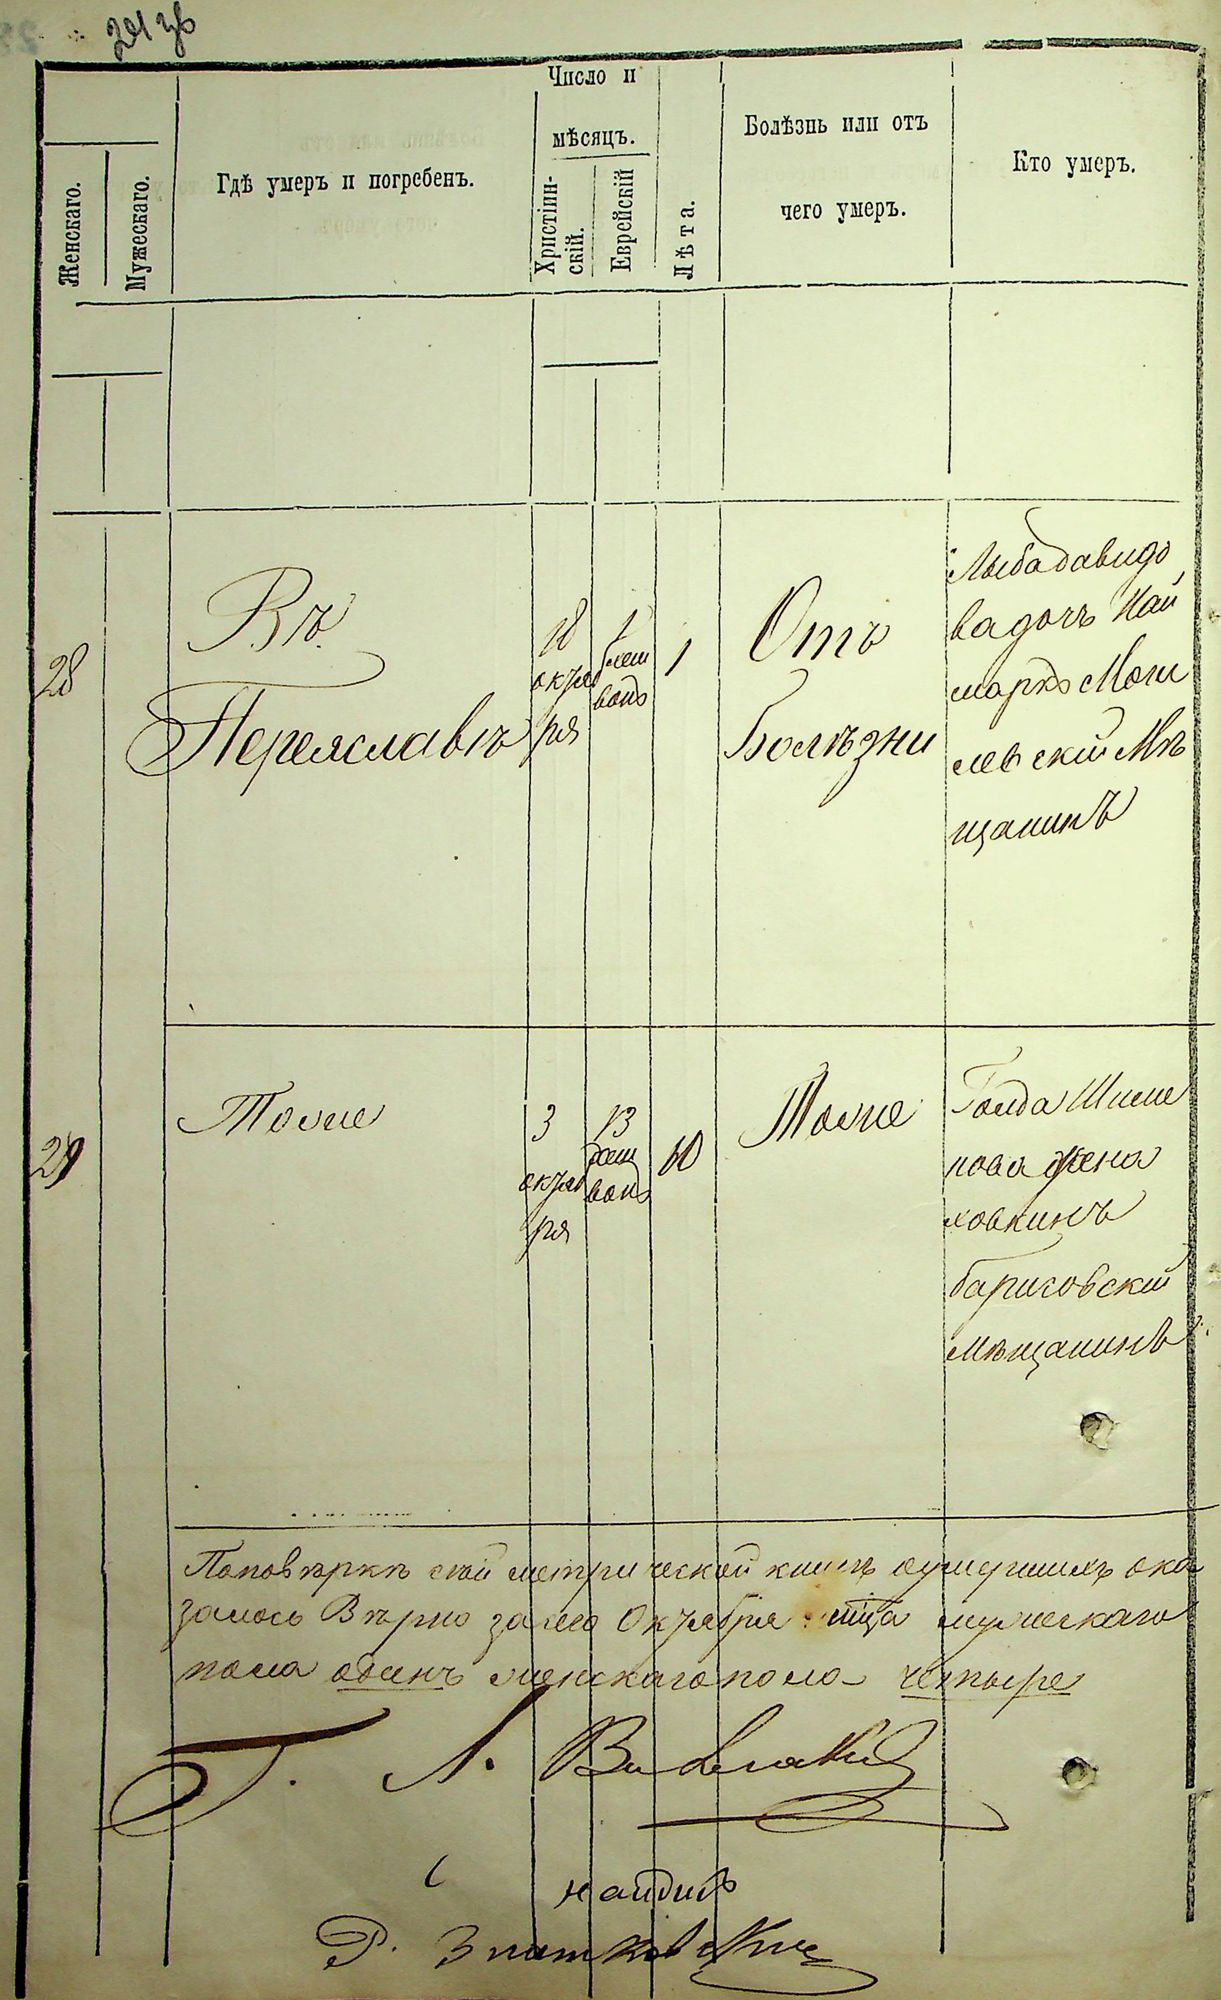 Женскаго.
Мужескаго.
Гдѣ умеръ и погребенъ.
Число и
мѣсяцъ.
Христіин-
скій.
Еврейскій
Лѣта.
Болѣзнь или отъ
чего умеръ.
Кто умеръ.
28
Въ
Переяславѣ
18
октяб
ря
1
хеш
вонъ
1
Отъ
Болѣзни
Лыбадавидо
вадочь Най
маркъ Моги
левский Мѣ
щанинъ
29
Тоже
3
октяб
ря
13
хеш
вонъ
60
Тоже
Голда Шиме
нова жена
ховкинъ
барисовский
мѣщанинъ
Поповѣркѣ сей метрической книгѣ оумершихъ ока
залось Вѣрно за м Октября мужескаго
пола одинъ женскагопола четыре
Г. Л.
Р.